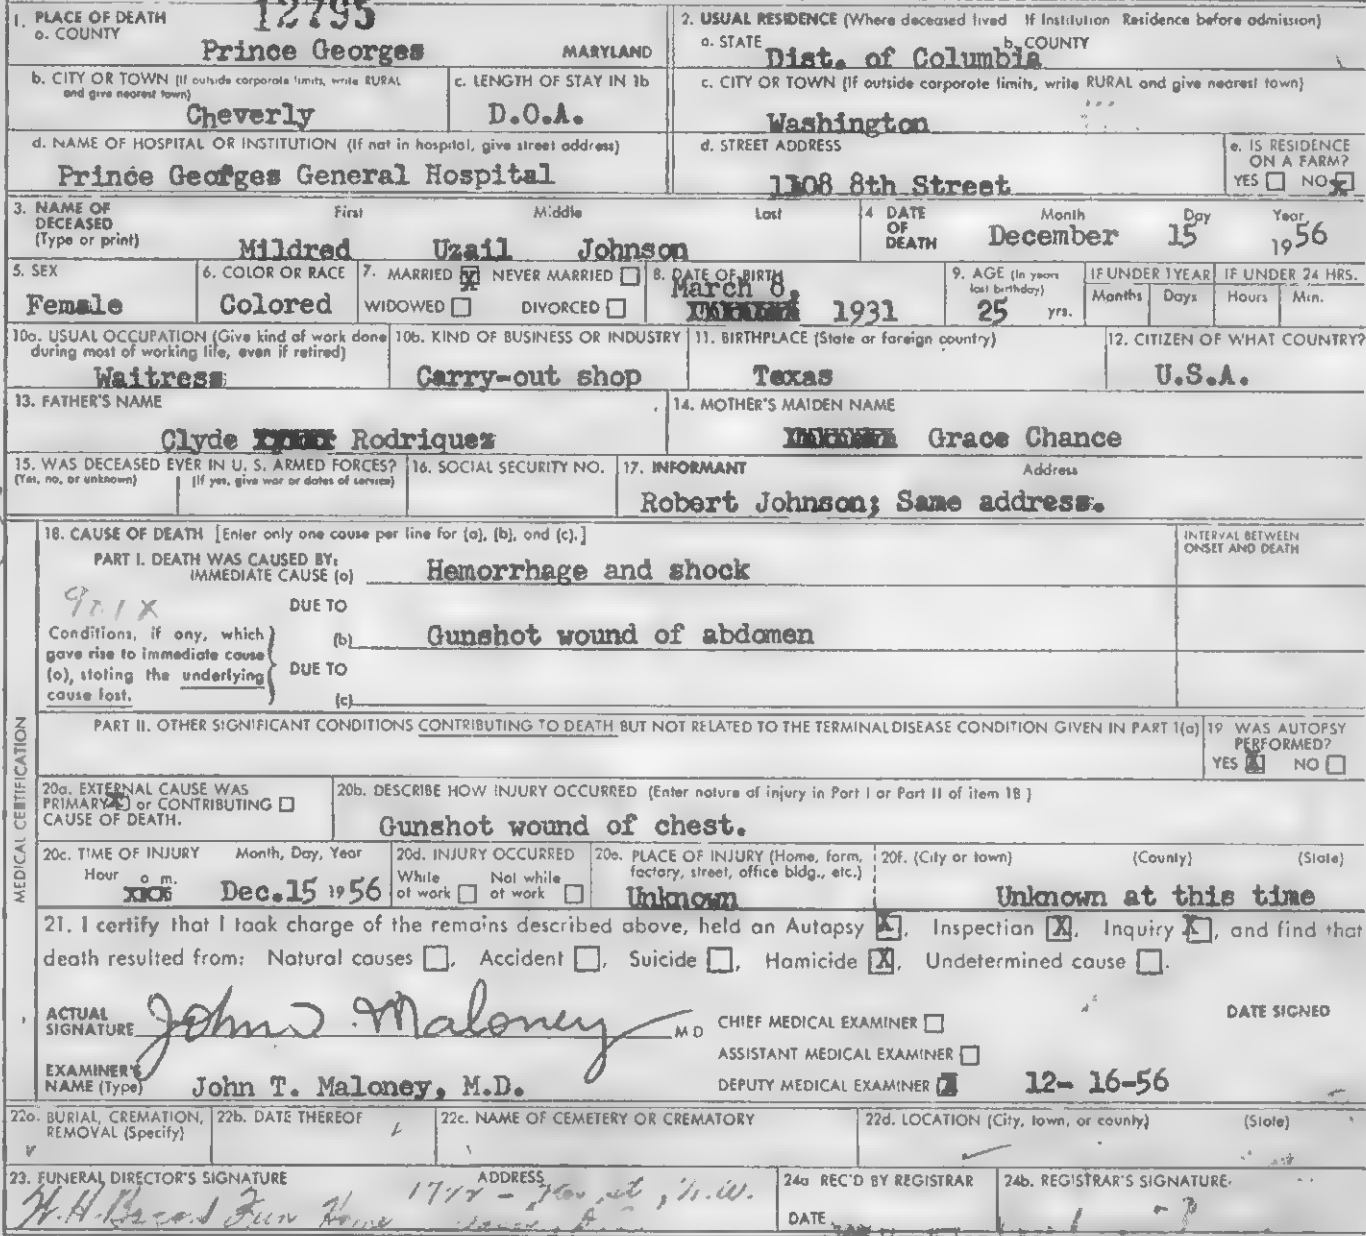 12795
1. PLACE OF DEATH
a. COUNTY
Prince Georges MARYLAND
2. USUAL RESIDENCE (Where deceased lived If Institution Residence before admission)
a. STATE b. COUNTY
Dist. of Columbia
b. CITY OR TOWN (If outside corporate limits, write RURAL and give nearest town)
Cheverly
c. LENGTH OF STAY IN 1b
D.O.A.
c. CITY OR TOWN (If outside corporate limits, write RURAL and give nearest town)
Washington
d. NAME OF HOSPITAL OR INSTITUTION (If not in hospital, give street address)
Prince Georges General Hospital
d. STREET ADDRESS
1108 8th Street
e. IS RESIDENCE ON A FARM?
YES NO X
3. NAME OF DECEASED (Type or print)
First Middle Last
Mildred Uzail Johnson
4 DATE OF DEATH
Month Day Year
December 15 1956
5. SEX
Female
6. COLOR OR RACE
Colored
7. MARRIED X NEVER MARRIED
WIDOWED DIVORCED
8. DATE OF BIRTH
March 8,
1931
9. AGE (In years last birthday)
25 yrs.
IF UNDER 1 YEAR IF UNDER 24 HRS.
Months Days Hours Min.
10a. USUAL OCCUPATION (Give kind of work done during most of working life, even if retired)
Waitress
10b. KIND OF BUSINESS OR INDUSTRY
Carry-out shop
11. BIRTHPLACE (State or foreign country)
Texas
12. CITIZEN OF WHAT COUNTRY?
U.S.A.
13. FATHER'S NAME
Clyde Rodriquez
14. MOTHER'S MAIDEN NAME
Grace Chance
15. WAS DECEASED EVER IN U. S. ARMED FORCES?
(Yes, no, or unknown) (If yes, give war or dates of service)
16. SOCIAL SECURITY NO.
17. INFORMANT Address
Robert Johnson; Same address.
MEDICAL CERTIFICATION
18. CAUSE OF DEATH [Enter only one cause per line for (a), (b), and (c).]
INTERVAL BETWEEN ONSET AND DEATH
PART I. DEATH WAS CAUSED BY:
IMMEDIATE CAUSE (a) Hemorrhage and shock
DUE TO
Conditions, if any, which gave rise to immediate cause (a), stating the underlying cause last.
(b) Gunshot wound of abdomen
DUE TO
(c)
PART II. OTHER SIGNIFICANT CONDITIONS CONTRIBUTING TO DEATH BUT NOT RELATED TO THE TERMINAL DISEASE CONDITION GIVEN IN PART 1(a)
19 WAS AUTOPSY PERFORMED?
YES X NO
20a. EXTERNAL CAUSE WAS PRIMARY X or CONTRIBUTING CAUSE OF DEATH.
20b. DESCRIBE HOW INJURY OCCURRED (Enter nature of injury in Part I or Part II of item 18)
Gunshot wound of chest.
20c. TIME OF INJURY Month, Day, Year
Hour m.
Dec. 15 1956
20d. INJURY OCCURRED
While at work Not while at work
20e. PLACE OF INJURY (Home, form, factory, street, office bldg., etc.)
Unknown
20f. (City or town) (County) (State)
Unknown at this time
21. I certify that I took charge of the remains described above, held an Autopsy X, Inspection X, Inquiry X, and find that
death resulted from: Natural causes , Accident , Suicide , Homicide X, Undetermined cause .
ACTUAL SIGNATURE John T Maloney M D
CHIEF MEDICAL EXAMINER
DATE SIGNED
ASSISTANT MEDICAL EXAMINER
EXAMINER'S NAME (Type) John T. Maloney, M.D.
DEPUTY MEDICAL EXAMINER X 12- 16-56
22a. BURIAL, CREMATION, REMOVAL (Specify)
22b. DATE THEREOF
22c. NAME OF CEMETERY OR CREMATORY
22d. LOCATION (City, town, or county) (State)
23. FUNERAL DIRECTOR'S SIGNATURE ADDRESS
Fun Home N.W.
24a REC'D BY REGISTRAR
DATE
24b. REGISTRAR'S SIGNATURE